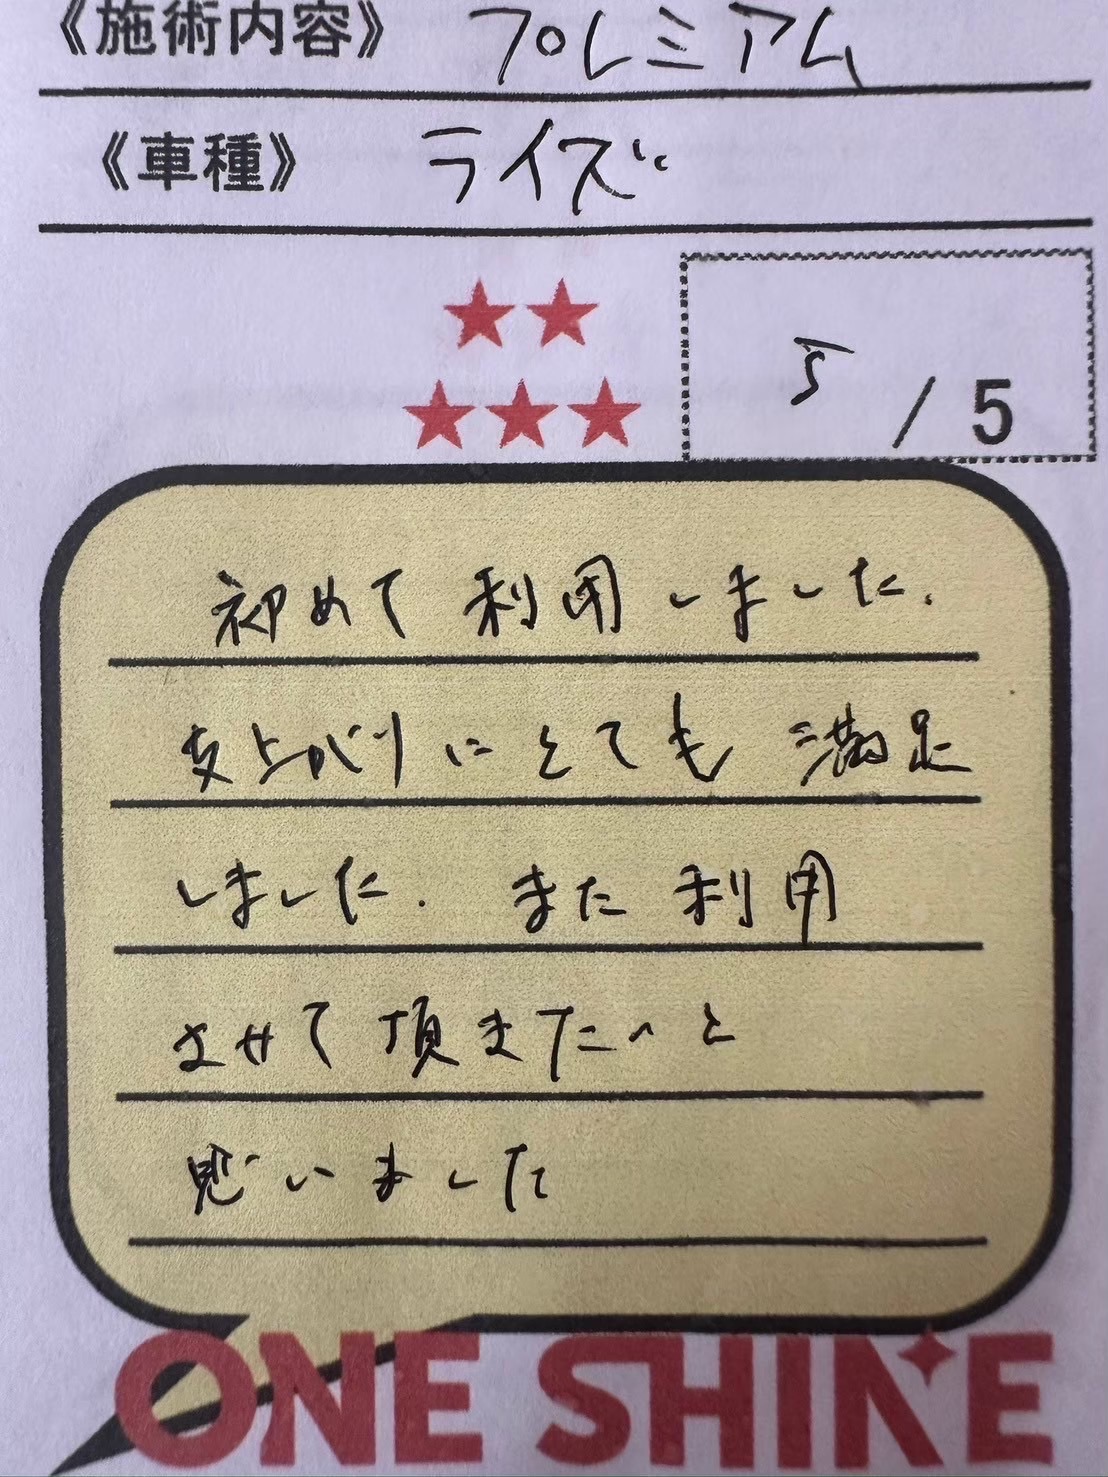 《施術内容》 プレミアム
《車種》 ライズ
★★
★★★
5 / 5
初めて利用しました.
上がりにとても満足
しました. また利用
させて頂きたいと
思いました
ONE SHINE